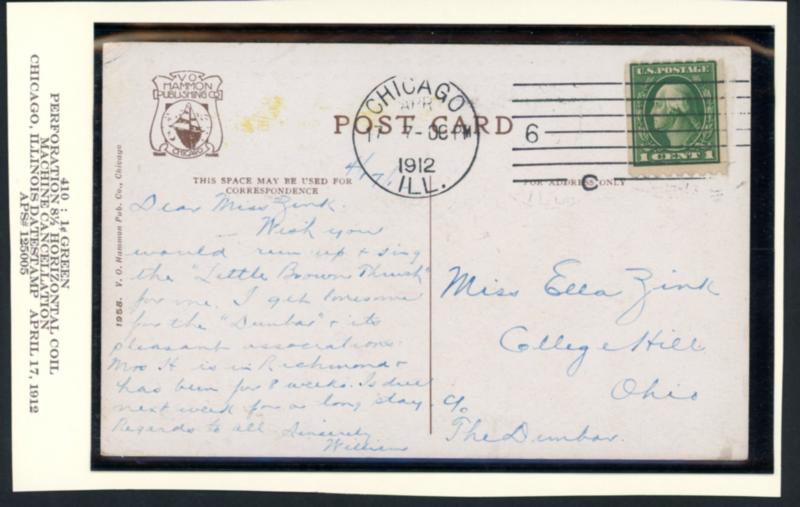 410 : 1¢ GREEN
PERFORATION 8½ HORIZONTAL COIL
MACHINE CANCELLATION
CHICAGO, ILLINOIS DATESTAMP APRIL 17, 1912
APS# 125005
V O
HAMMON
PUBLISHING CO
CHICAGO
CHICAGO
APR
17 7-00 PM
1912
ILL.
6
C
U.S. POSTAGE
1 CENT 1
POST CARD
THIS SPACE MAY BE USED FOR
CORRESPONDENCE
FOR ADDRESS ONLY
1958. V. O. Hammon Pub. Co., Chicago
4/17/
Dear Miss Zink.
Wish you
would run up & sing
the "Little Brown Thrush"
for me. I get lonesome
for the "Dunbar" & its
pleasant associations.
Mrs H is in Richmond &
has been for 8 weeks. Is due
next week for a long stay.
Regards to all Sincerely
William
Miss Ella Zink
College Hill
Ohio
c/o
The Dunbar.